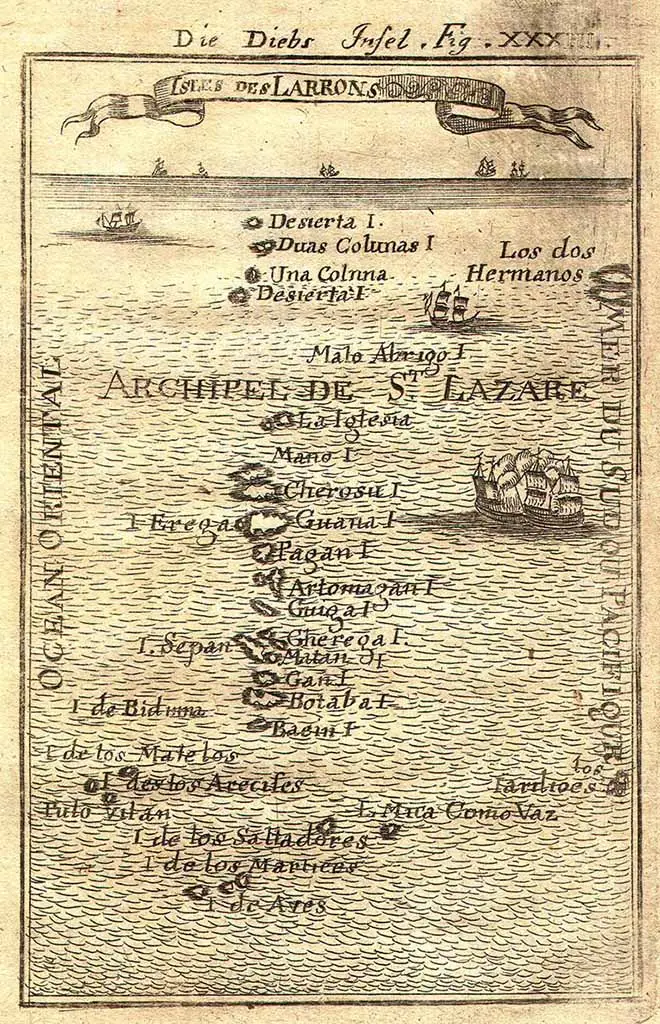 Die Diebs Insel. Fig. XXXIII.
ISLES DES LARRONS
Desierta I.
Duas Colunas I
Los dos
Hermanos
Una Colnna
Desierta I
Malo Abrigo I
ARCHIPEL DE St. LAZARE
OCEAN ORIENTAL
MER DU SUD OU PACIFIQUE
La Iglesia
Mano I
Cherosu I
I Erega
Guana I
Pagan I
Artomagan I
Guiga I
I. Sepan
Gherega I.
Matan I
Gan I
Botaba I
I de Bidnna
Bacin I
I de los Matelos
los
I des los Arecifes
Tardioes
Pulo Vilan
I. Mica Como Vaz
I de los Saltadores
I de los Martires
I de Ares